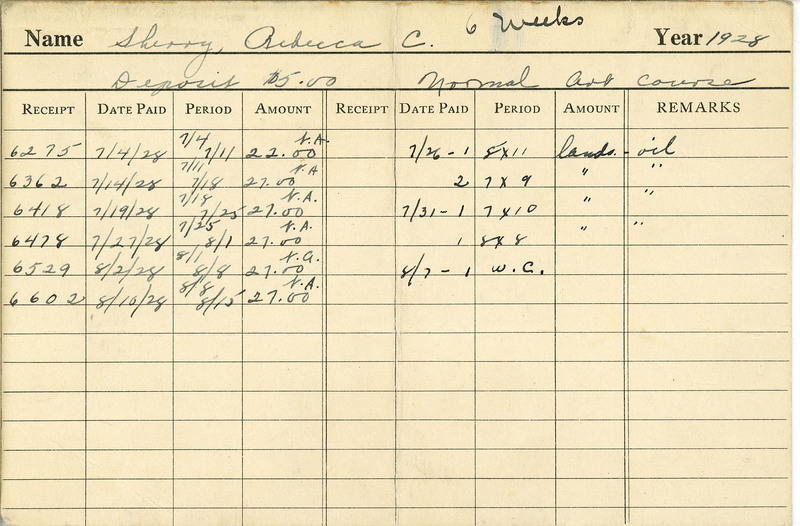 6 Weeks
Name Sherry, Rebecca C. Year 1928
Deposit $5.00 Normal Art Course
RECEIPT DATE PAID PERIOD AMOUNT RECEIPT DATE PAID PERIOD AMOUNT REMARKS
6275 7/4/28 7/4 7/11 22.00 N.A. 7/26-1 8x11 lands - oil
6362 7/14/28 7/11 7/18 27.00 N.A 2 7x9 " "
6418 7/19/28 7/18 7/25 27.00 N.A. 7/31-1 7x10 " "
6478 7/27/28 7/25 8/1 27.00 N.A. 1 8x8 " "
6529 8/2/28 8/1 8/8 27.00 N.A. 8/7-1 W.C.
6602 8/10/28 8/8 8/15 27.00 N.A.